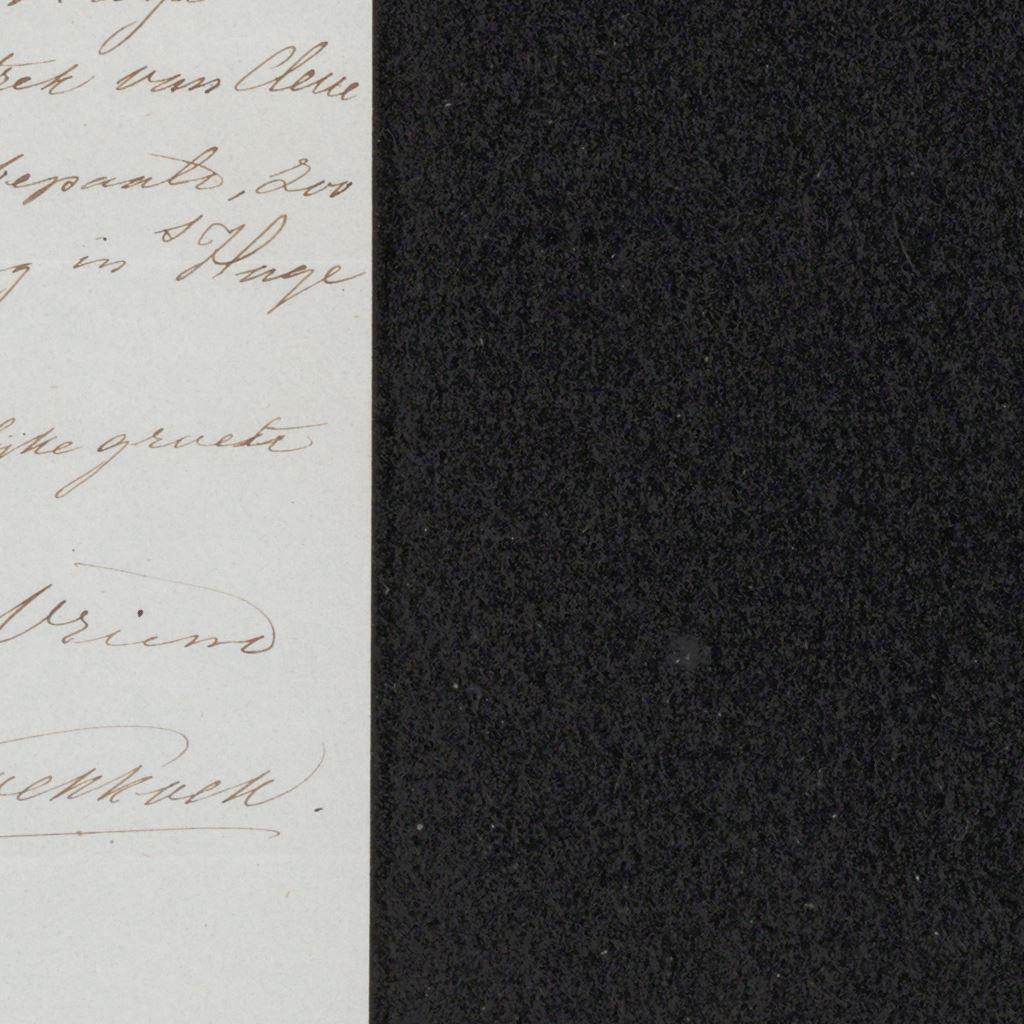 trek van Cleve
bepaald, zoo
g in s'Hage
ijke groete
Vriend
oekkoek.